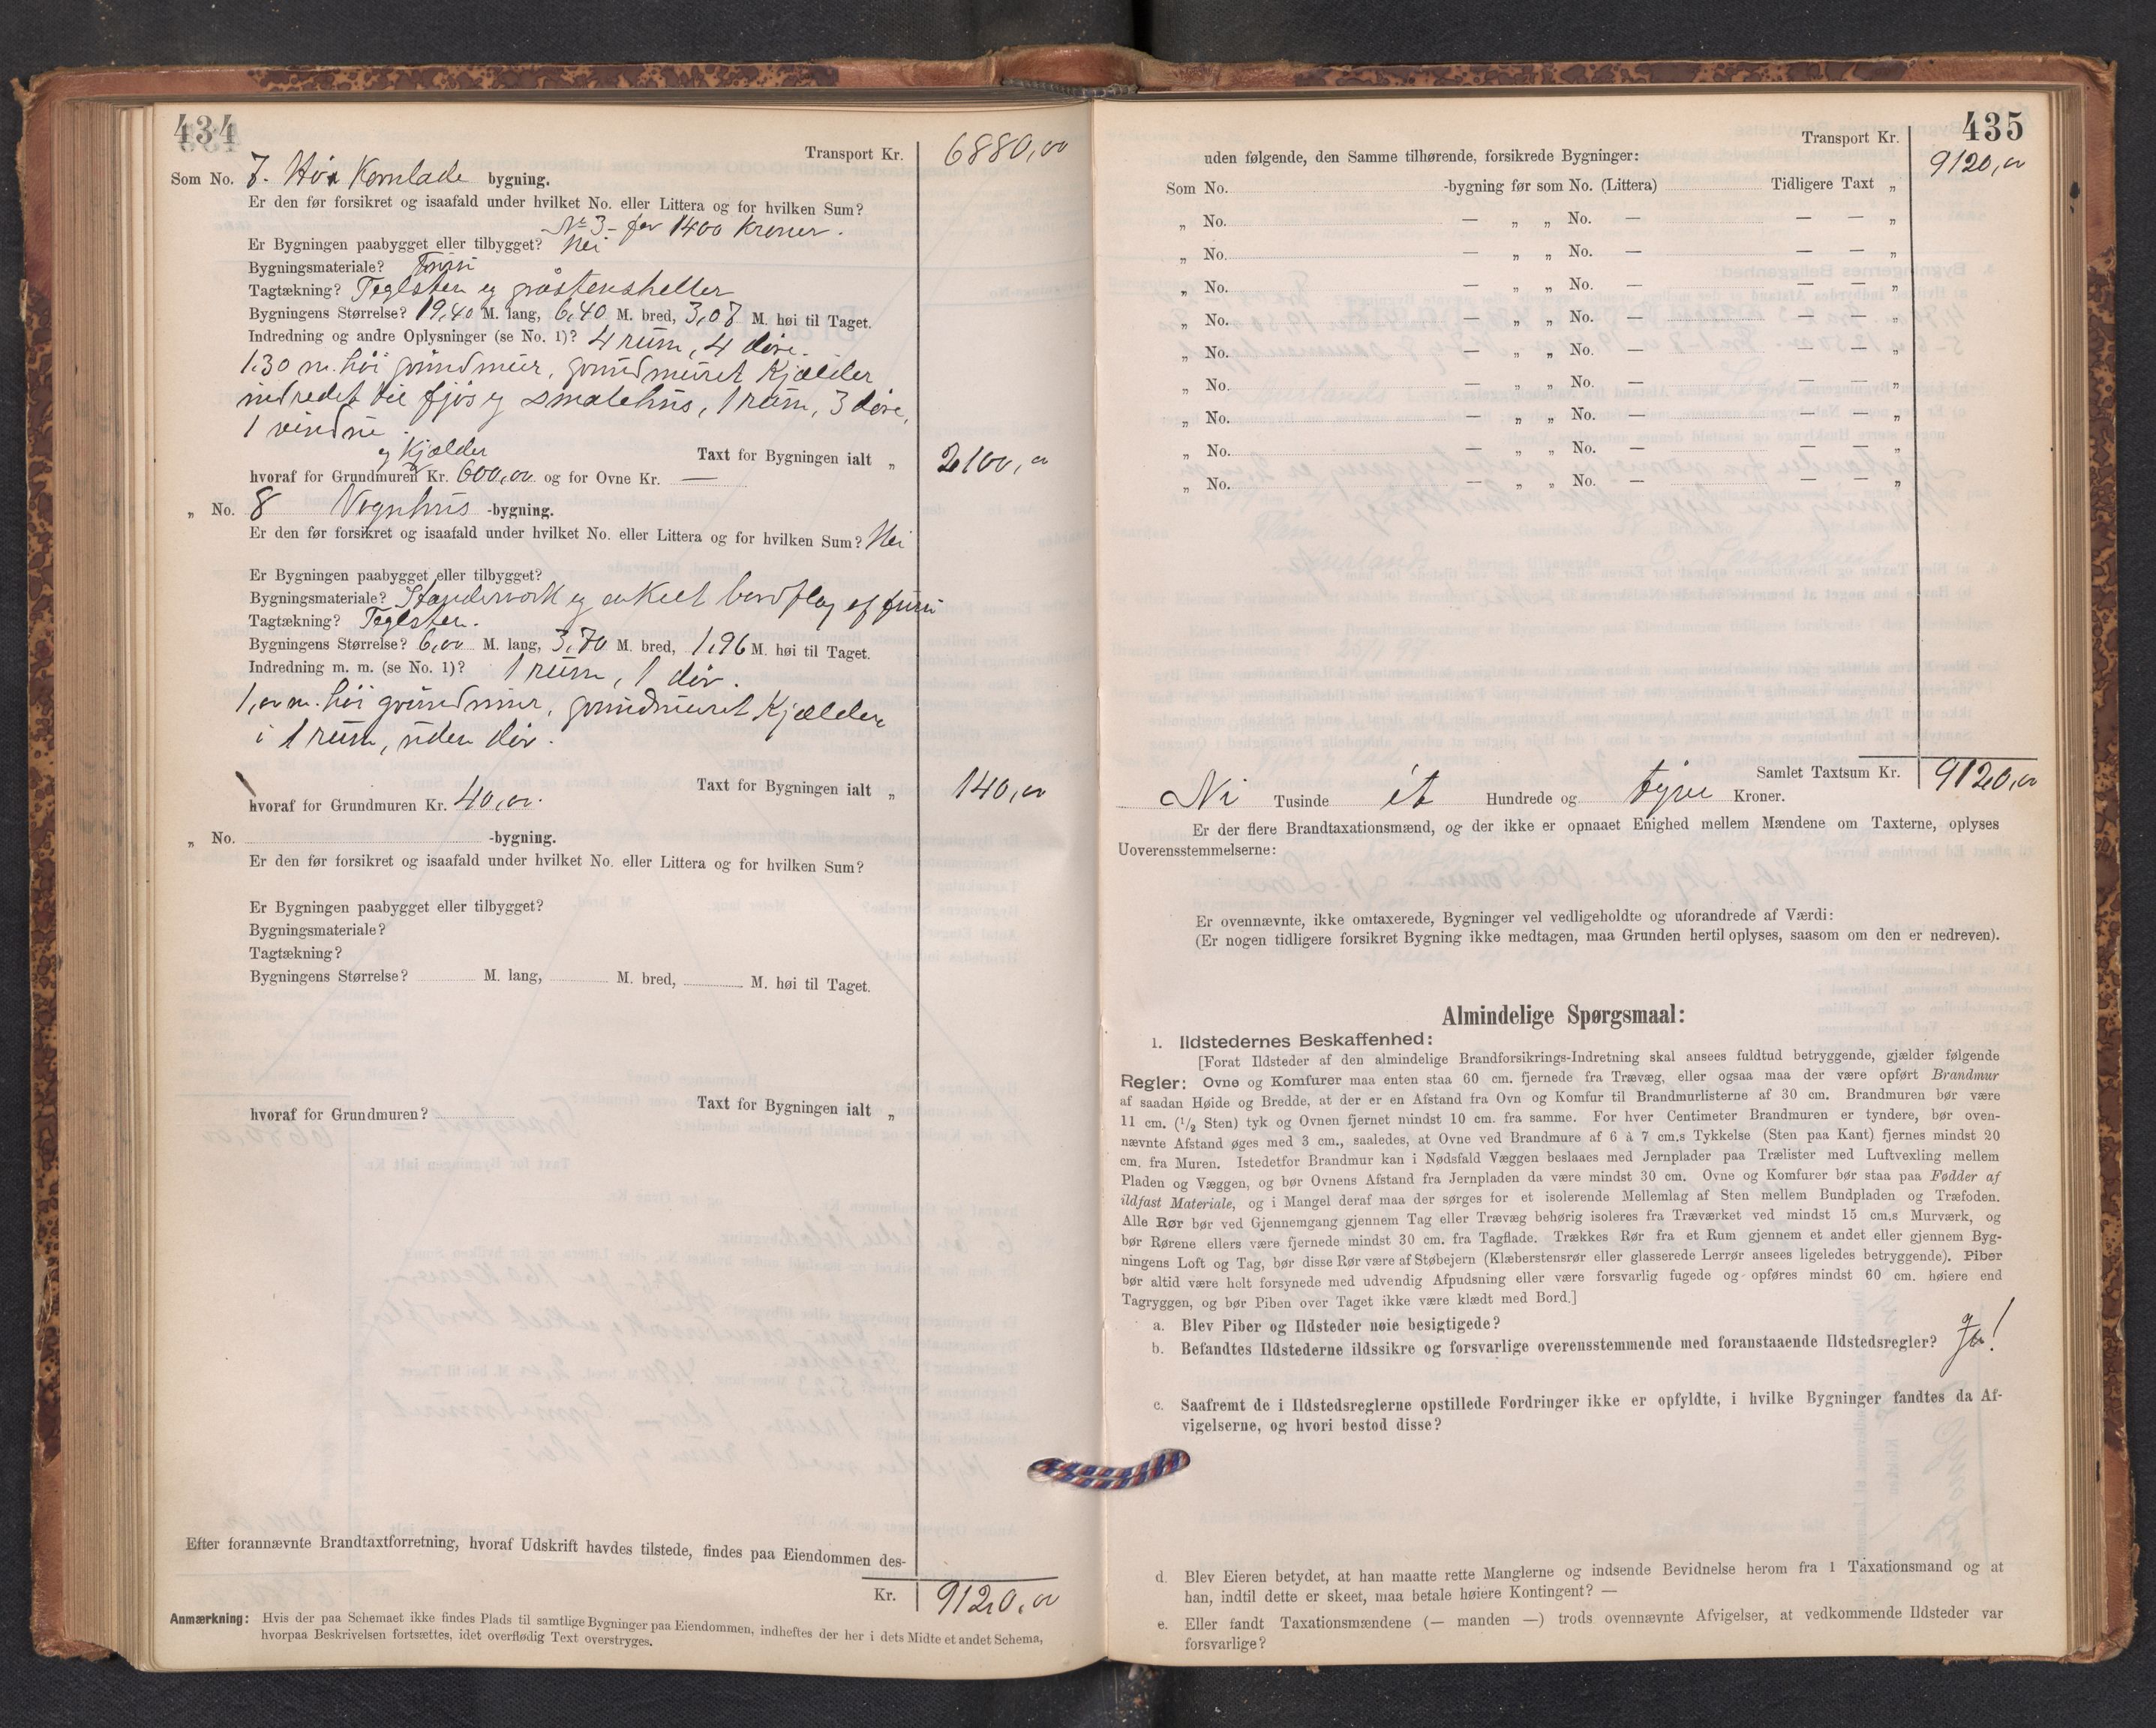 434
Transport Kr. 6880,00
Som No. 7. Hø & Kornlade bygning.
Er den før forsikret og isaafald under hvilket No. eller Littera og for hvilken Sum?
No 3 – for 1400 Kroner.
Er Bygningen paabygget eller tilbygget? Nei
Bygningsmateriale? Furu
Tagtækning? Teglsten og gråstensheller
Bygningens Størrelse? 19,40 M. lang, 6,40 M. bred, 3,08 M. høi til Taget.
Indredning og andre Oplysninger (se No. 1)? 4 rum, 4 døre.
1.30 m. høi grundmur, grundmuret Kjælder
indredet til fjøs og smalehus, 1 rum, 3 døre,
1 vindue.
og Kjælder
Taxt for Bygningen ialt „ 2100,00
hvoraf for Grundmuren Kr. 600,00 og for Ovne Kr. —
„ No. 8 Vognhus -bygning.
Er den før forsikret og isaafald under hvilket No. eller Littera og for hvilken Sum? Nei
Er Bygningen paabygget eller tilbygget?
Bygningsmateriale? Standerverk og enkelt bordflag af furu
Tagtækning? Teglsten.
Bygningens Størrelse? 6,00 M. lang, 3,70 M. bred, 1,96 M. høi til Taget.
Indredning m. m. (se No. 1)? 1 rum, 1 dør.
1,00 m. høi grundmur, grundmuret Kjælder
i 1 rum, uden dør.
Taxt for Bygningen ialt „ 140,00
hvoraf for Grundmuren Kr. 40,00.
„ No. -bygning.
Er den før forsikret og isaafald under hvilket No. eller Littera og for hvilken Sum?
Er Bygningen paabygget eller tilbygget?
Bygningsmateriale?
Tagtækning?
Bygningens Størrelse? M. lang, M. bred, M. høi til Taget.
Taxt for Bygningen ialt „
hvoraf for Grundmuren?
Efter forannævnte Brandtaxtforretning, hvoraf Udskrift havdes tilstede, findes paa Eiendommen des-
Kr. 9120,00
Anmærkning: Hvis der paa Schemaet ikke findes Plads til samtlige Bygninger paa Eiendommen, indheftes der her i dets Midte et andet Schema,
hvorpaa Beskrivelsen fortsættes, idet overflødig Text overstryges.
435
Transport Kr. 9120,00
uden følgende, den Samme tilhørende, forsikrede Bygninger:
Som No. -bygning før som No. (Littera) Tidligere Taxt „
„ No. — „ „ No. — — — „
„ No. — „ „ No. — — — „
„ No. — „ „ No. — — — „
„ No. — „ „ No. — — — „
„ No. — „ „ No. — — — „
„ No. — „ „ No. — — — „
„ No. — „ „ No. — — — „
„ No. — „ „ No. — — — „
„ No. — „ „ No. — — — „
Samlet Taxtsum Kr. 9120,00
Ni Tusinde ét Hundrede og tyve Kroner.
Er der flere Brandtaxationsmænd, og der ikke er opnaaet Enighed mellem Mændene om Taxterne, oplyses
Uoverensstemmelserne:
Er ovennævnte, ikke omtaxerede, Bygninger vel vedligeholdte og uforandrede af Værdi:
(Er nogen tidligere forsikret Bygning ikke medtagen, maa Grunden hertil oplyses, saasom om den er nedreven).
Almindelige Spørgsmaal:
1. Ildstedernes Beskaffenhed:
[Forat Ildsteder af den almindelige Brandforsikrings-Indretning skal ansees fuldtud betryggende, gjælder følgende
Regler: Ovne og Komfurer maa enten staa 60 cm. fjernede fra Trævæg, eller ogsaa maa der være opført Brandmur
af saadan Høide og Bredde, at der er en Afstand fra Ovn og Komfur til Brandmurlisterne af 30 cm. Brandmuren bør være
11 cm. (1/2 Sten) tyk og Ovnen fjernet mindst 10 cm. fra samme. For hver Centimeter Brandmuren er tyndere, bør oven-
nævnte Afstand øges med 3 cm., saaledes, at Ovne ved Brandmure af 6 à 7 cm.s Tykkelse (Sten paa Kant) fjernes mindst 20
cm. fra Muren. Istedetfor Brandmur kan i Nødsfald Væggen beslaaes med Jernplader paa Trælister med Luftvexling mellem
Pladen og Væggen, og bør Ovnens Afstand fra Jernpladen da være mindst 30 cm. Ovne og Komfurer bør staa paa Fødder af
ildfast Materiale, og i Mangel deraf maa der sørges for et isolerende Mellemlag af Sten mellem Bundpladen og Træfoden.
Alle Rør bør ved Gjennemgang gjennem Tag eller Trævæg behørig isoleres fra Træværket ved mindst 15 cm.s Murværk, og
bør Rørene ellers være fjernede mindst 30 cm. fra Tagflade. Trækkes Rør fra et Rum gjennem et andet eller gjennem Byg-
ningens Loft og Tag, bør disse Rør være af Støbejern (Klæberstensrør eller glasserede Lerrør ansees ligeledes betryggende). Piber
bør altid være helt forsynede med udvendig Afpudsning eller være forsvarlig fugede og opføres mindst 60 cm. høiere end
Tagryggen, og bør Piben over Taget ikke være klædt med Bord.]
a. Blev Piber og Ildsteder nøie besigtigede?
b. Befandtes Ildstederne ildssikre og forsvarlige overensstemmende med foranstaaende Ildstedsregler? Ja!
c. Saafremt de i Ildstedsreglerne opstillede Fordringer ikke er opfyldte, i hvilke Bygninger fandtes da Af-
vigelserne, og hvori bestod disse?
d. Blev Eieren betydet, at han maatte rette Manglerne og indsende Bevidnelse herom fra 1 Taxationsmand og at
han, indtil dette er skeet, maa betale høiere Kontingent? —
e. Eller fandt Taxationsmændene (— manden —) trods ovennævnte Afvigelser, at vedkommende Ildsteder var
forsvarlige?